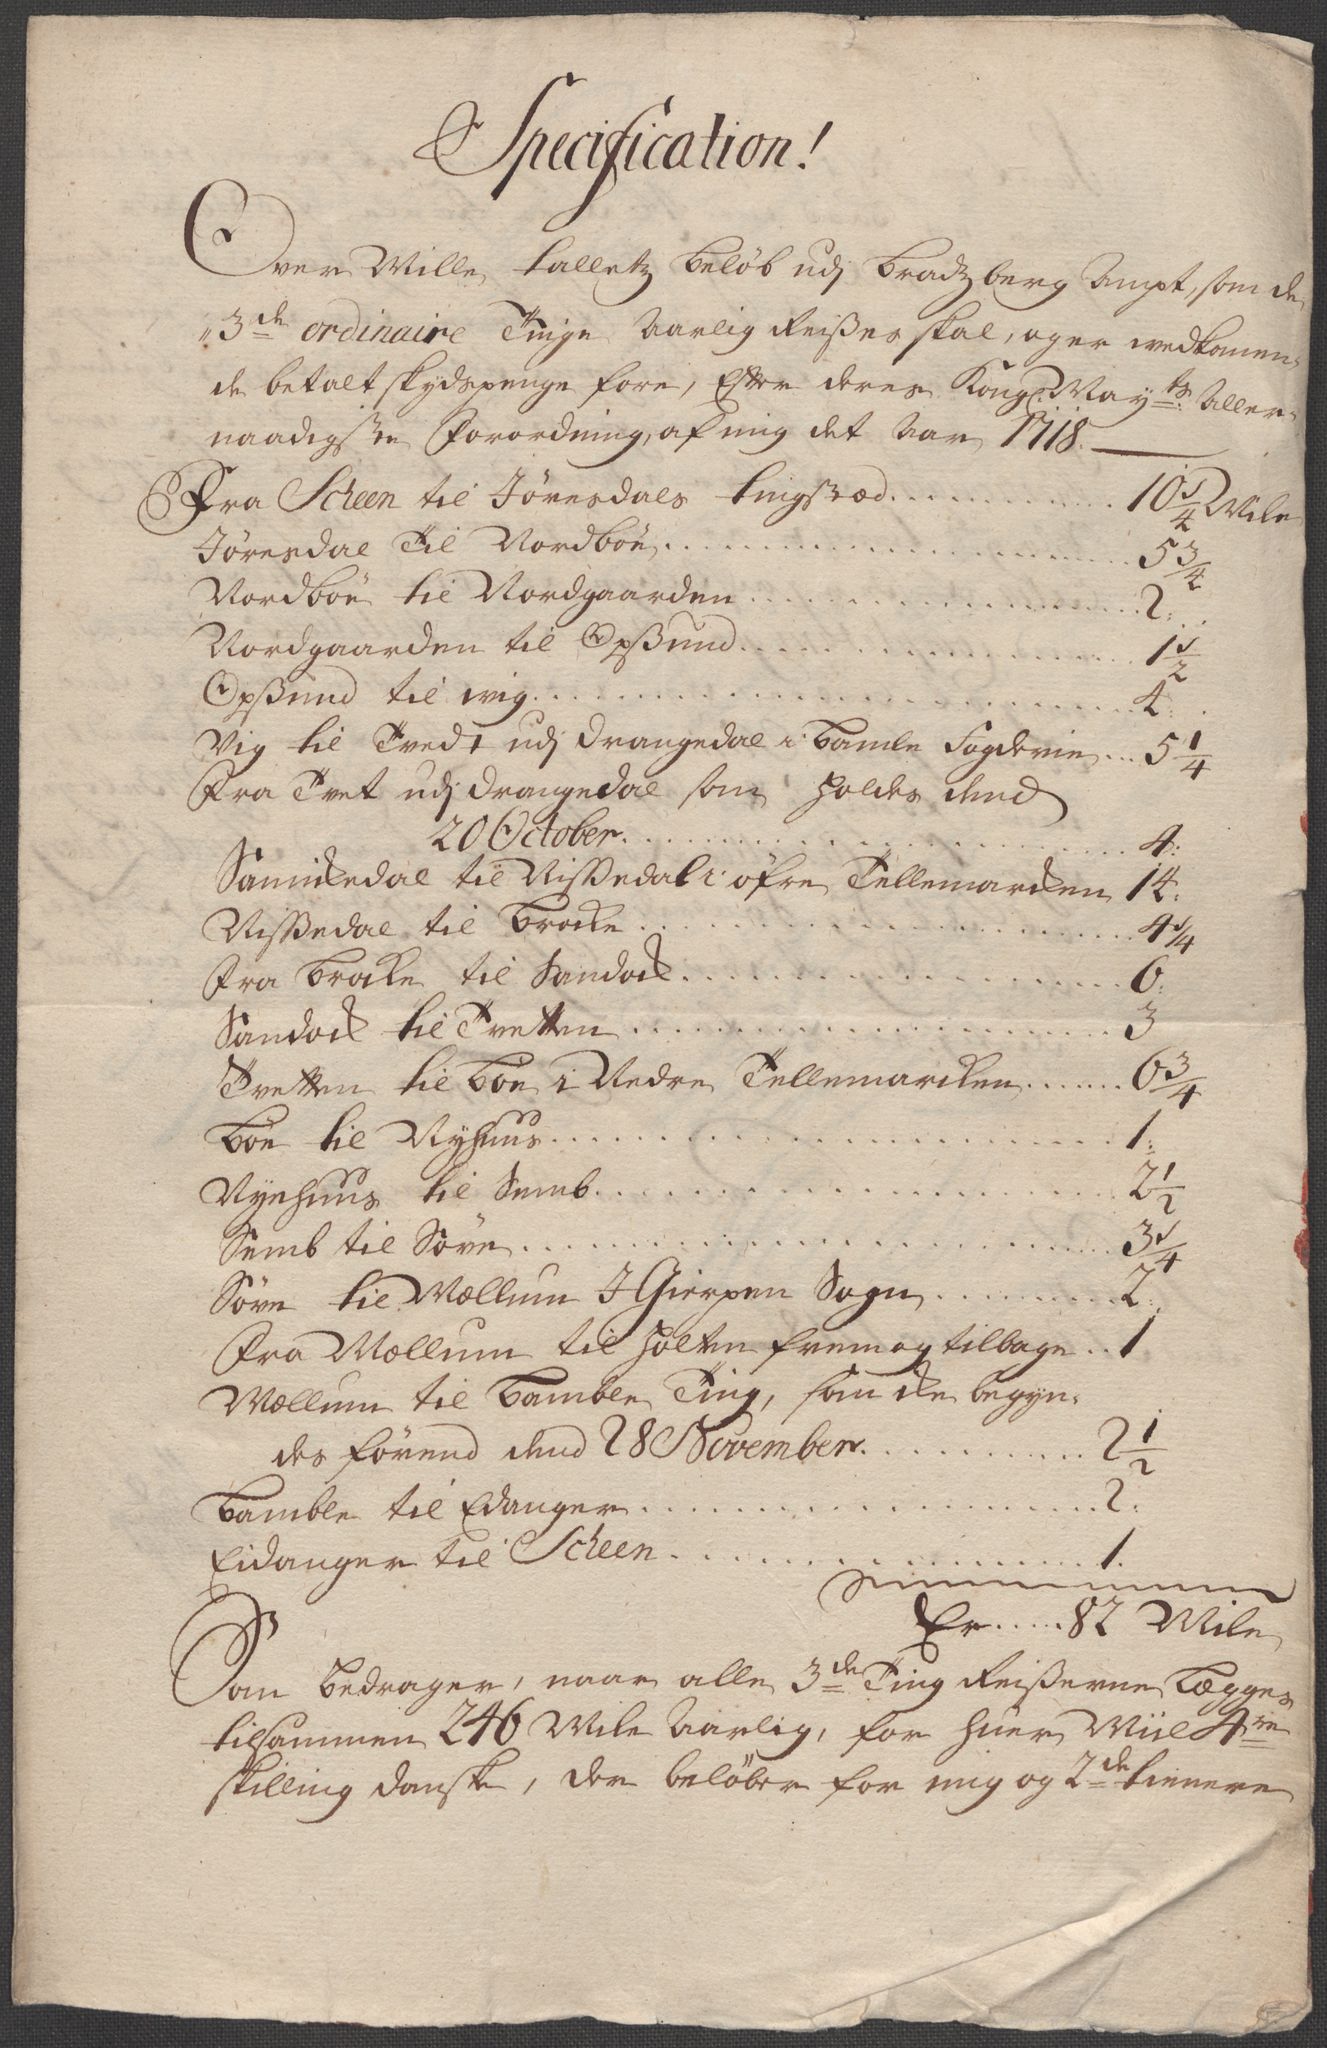 Specification!
Over Mille tallets beløb udj Bradtzberg Ampt, som de
3de ordinaire Tinge Aarlig Reißes skal, og er vedkomen-
de betalt skydspenge fore, Efter deres Kongl: Mayts: Aller-
naadigste Forordning, af mig det Aar 1718.
Fra Scheen til Jøresdals tingstæd .......... 10 1/4 Mile
Jøresdal til Nordbøe .......... 5 3/4
Nordbøe til Nordgaarden .......... 2:
Nordgaarden til Opßund .......... 1 1/2
Opßund til wig .......... 4:
Vig til Tvedt udj Drangedal i Bamle Fogderie ... 5 1/4
Fra Tvet udj Drangedal som holdes dend
20 October .......... 4:
Sannikedal til Nißedal i øfre Tellemarcken 14:
Nißedal til Brocke .......... 4 1/4
Fra Brocke til Sandock .......... 6:
Sandock til Tvetten .......... 3
Tvetten til Bøe i Nedre Tellemarcken ...... 6 3/4
Bøe til Nyhuus .......... 1:
Nyehuus til Semb .......... 2 1/2
Semb til Sôve .......... 3 1/4
Sôve til Mællum I Gierpen Sogn .......... 2:
Fra Mællum til Holten frem og tilbage .. 1
Mællum til Bamble Ting, som ike begyn-
des førend dend 28 November .......... 2 1/2
Bamble til Edanger .......... 2:
Eidanger til Scheen .......... 1.
Er ..... 82 Mile
Saa bedrager, naar alle 3de Ting Reißerne Lægges
tilsammen 246 Mile Aarlig, for huer Miil 4re
skilling dansk, der beløber for mig og 2de tienere